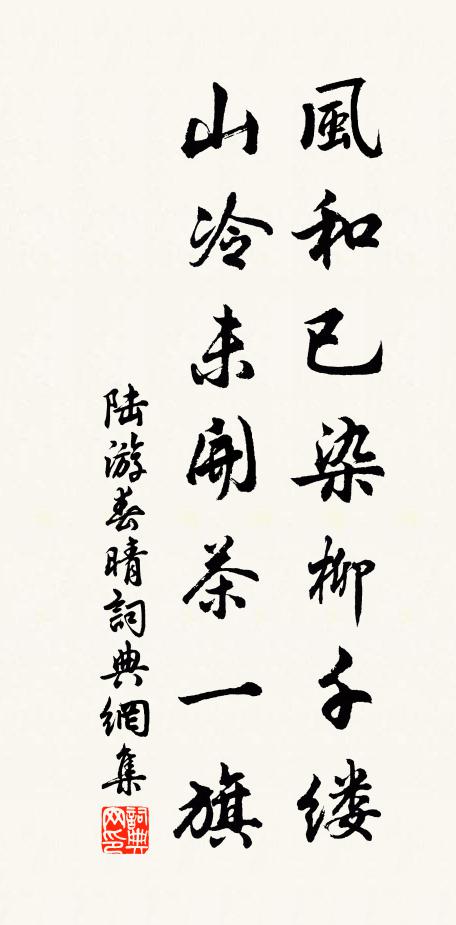 風和已染柳千缕
山冷未開茶一旗
陆游春晴詞典網集
詞典网印